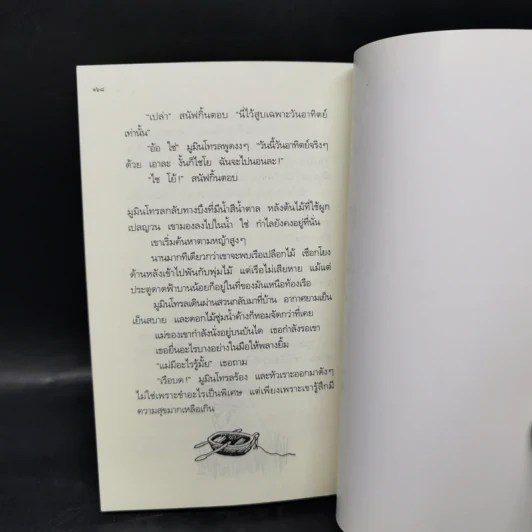 ๑๖๔
"เปล่า" สนัฟกิ้นตอบ "นี่ไว้สูบเฉพาะวันอาทิตย์
เท่านั้น"
"อ้อ ใช่" มูมินโทรลพูดงงๆ "วันนี้วันอาทิตย์จริงๆ
ด้วย เอาละ งั้นก็ไชโย ฉันจะไปนอนละ!"
"ไช โย้!" สนัฟกิ้นตอบ
มูมินโทรลกลับทางบึงที่มีน้ำสีน้ำตาล หลังต้นไม้ที่ใช้ผูก
เปลญวน เขามองลงไปในน้ำ ใช่ กำไลยังคงอยู่ที่นั่น
เขาเริ่มค้นหาตามหญ้าสูงๆ
นานมากทีเดียวกว่าเขาจะพบเรือเปลือกไม้ เชือกโยง
ด้านหลังเข้าไปพันกับพุ่มไม้ แต่เรือไม่เสียหาย แม้แต่
ประตูดาดฟ้าบานน้อยก็อยู่ในที่ของมันเหนือท้องเรือ
มูมินโทรลเดินผ่านสวนกลับมาที่บ้าน อากาศยามเย็น
เย็นสบาย และดอกไม้ชุ่มน้ำค้างก็หอมจัดกว่าที่เคย
แม่ของเขากำลังนั่งอยู่บนบันได เธอกำลังรอเขา
เธอยื่นอะไรบางอย่างในมือให้พลางยิ้ม
"แม่มีอะไรรู้มั้ย" เธอถาม
"เรือบด!" มูมินโทรลร้อง และหัวเราะออกมาดังๆ
ไม่ใช่เพราะขำอะไรเป็นพิเศษ แต่เพียงเพราะเขารู้สึกมี
ความสุขมากเหลือเกิน